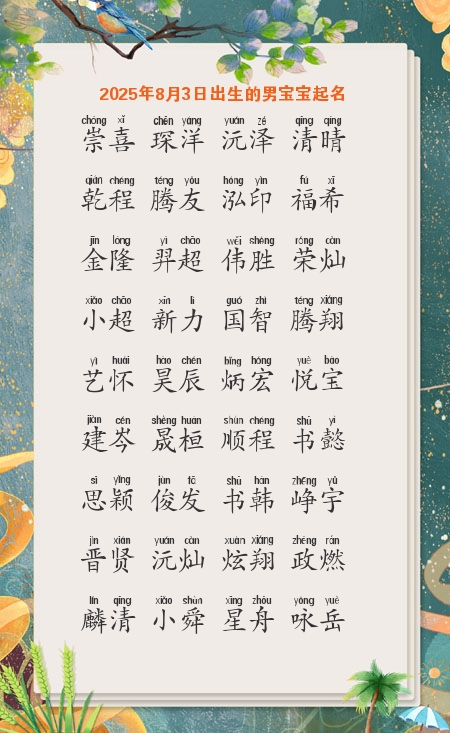 2025年8月3日出生的男宝宝起名
chóng xǐ chēn yáng yuán zé qíng qíng
崇喜 琛洋 沅泽 清晴
qián chéng téng yǒu hóng yìn fú xī
乾程 腾友 泓印 福希
jīn lóng yì chāo wěi shèng róng càn
金隆 羿超 伟胜 荣灿
xiǎo chāo xīn lì guó zhì téng xiáng
小超 新力 国智 腾翔
yì huái hào chén bǐng hóng yuè bǎo
艺怀 昊辰 炳宏 悦宝
jiàn cén shèng huán shùn chéng shū yì
建岑 晟桓 顺程 书懿
sī yǐng jùn fā shū hán zhēng yǔ
思颖 俊发 书韩 峥宇
jìn xián yuán càn xuàn xiáng zhèng rán
晋贤 沅灿 炫翔 政燃
lín qīng xiǎo shùn xīng zhōu yǒng yuè
麟清 小舜 星舟 咏岳